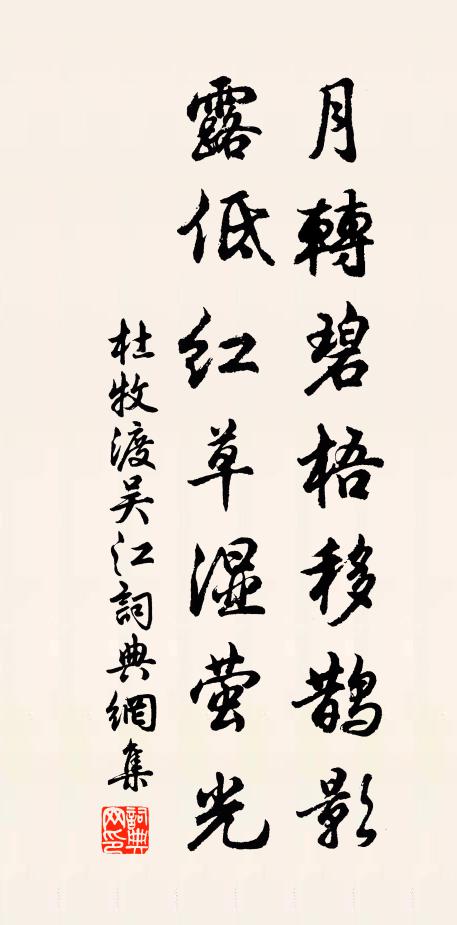 月轉碧梧移鵲影
露低红草湿萤光
杜牧渡吴江詞典網集
詞典网印